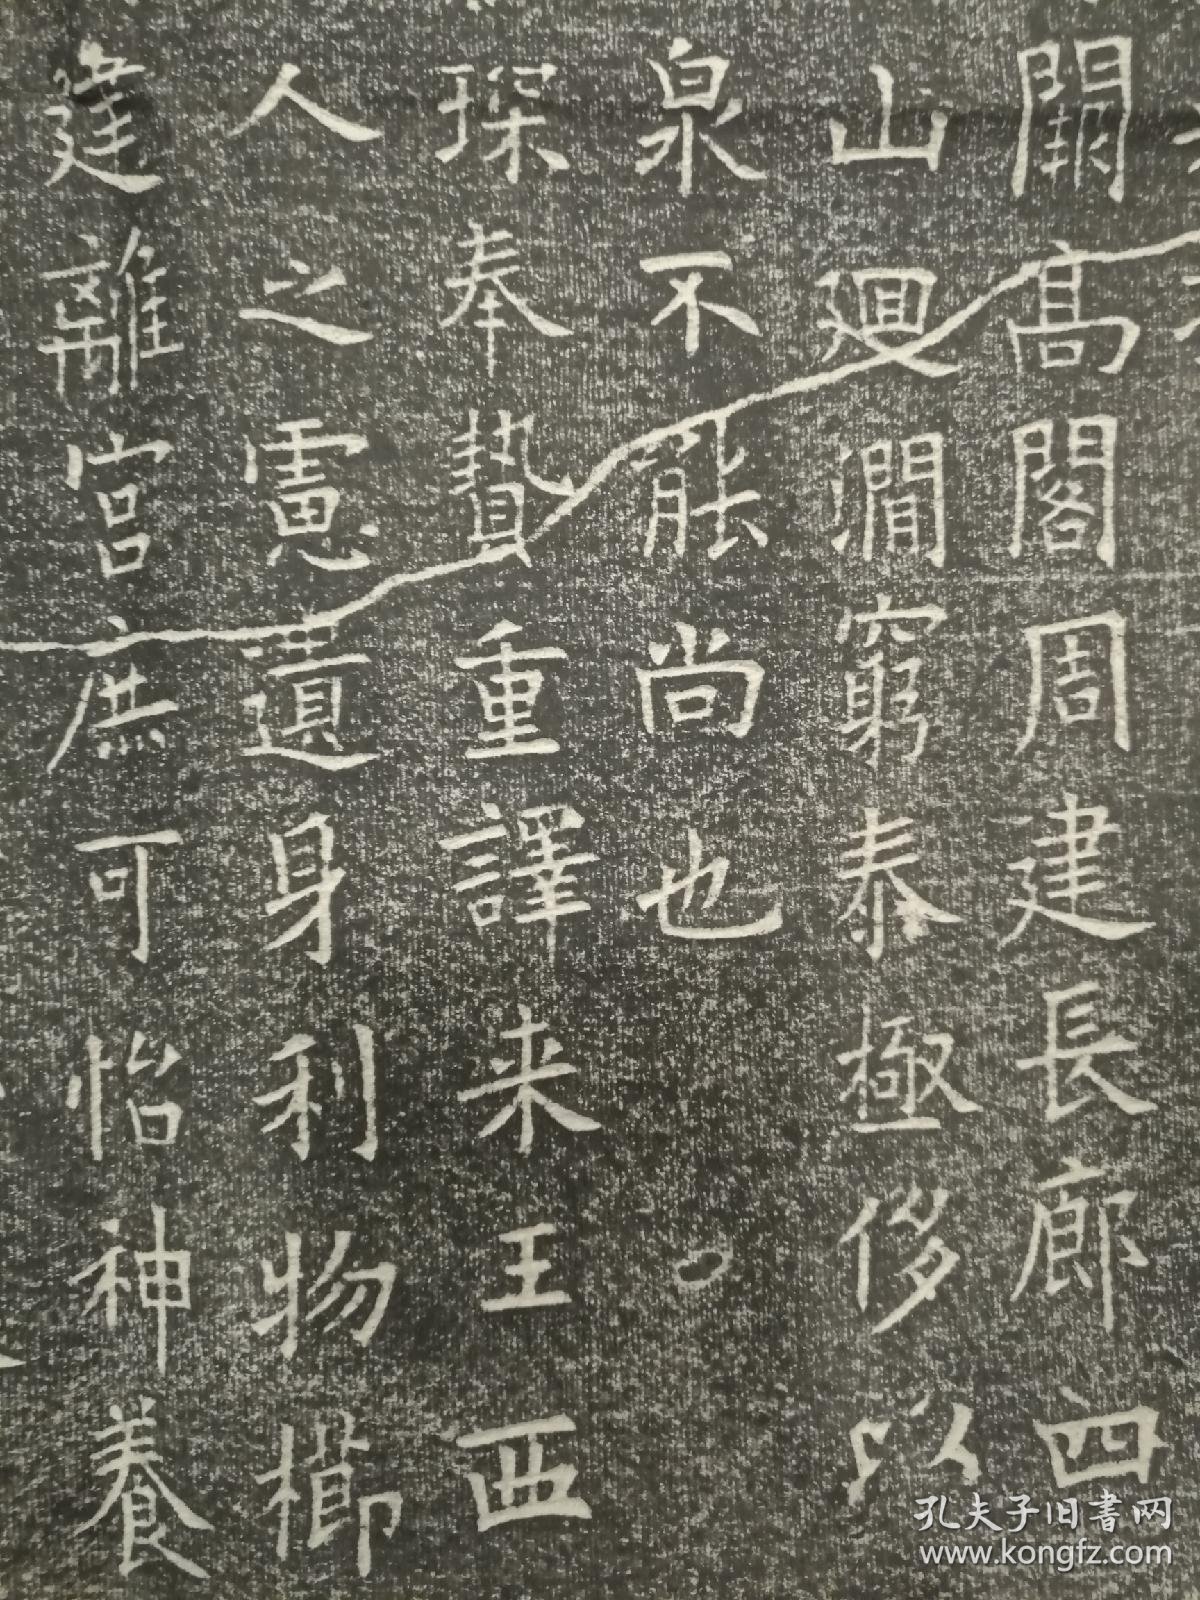 闢高閣周建長廊四
山廻澗窮泰極侈以
泉不能尚也
琛奉贄重譯来王西
人之慮遺身利物櫛
建離宮庶可怡神養
孔夫子旧書网
www.kongfz.com